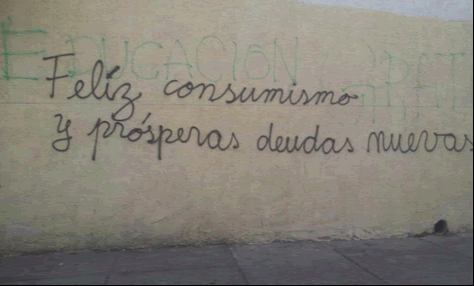 EDUCACION GRATIS
Felíz consumismo
y prósperas deudas nuevas